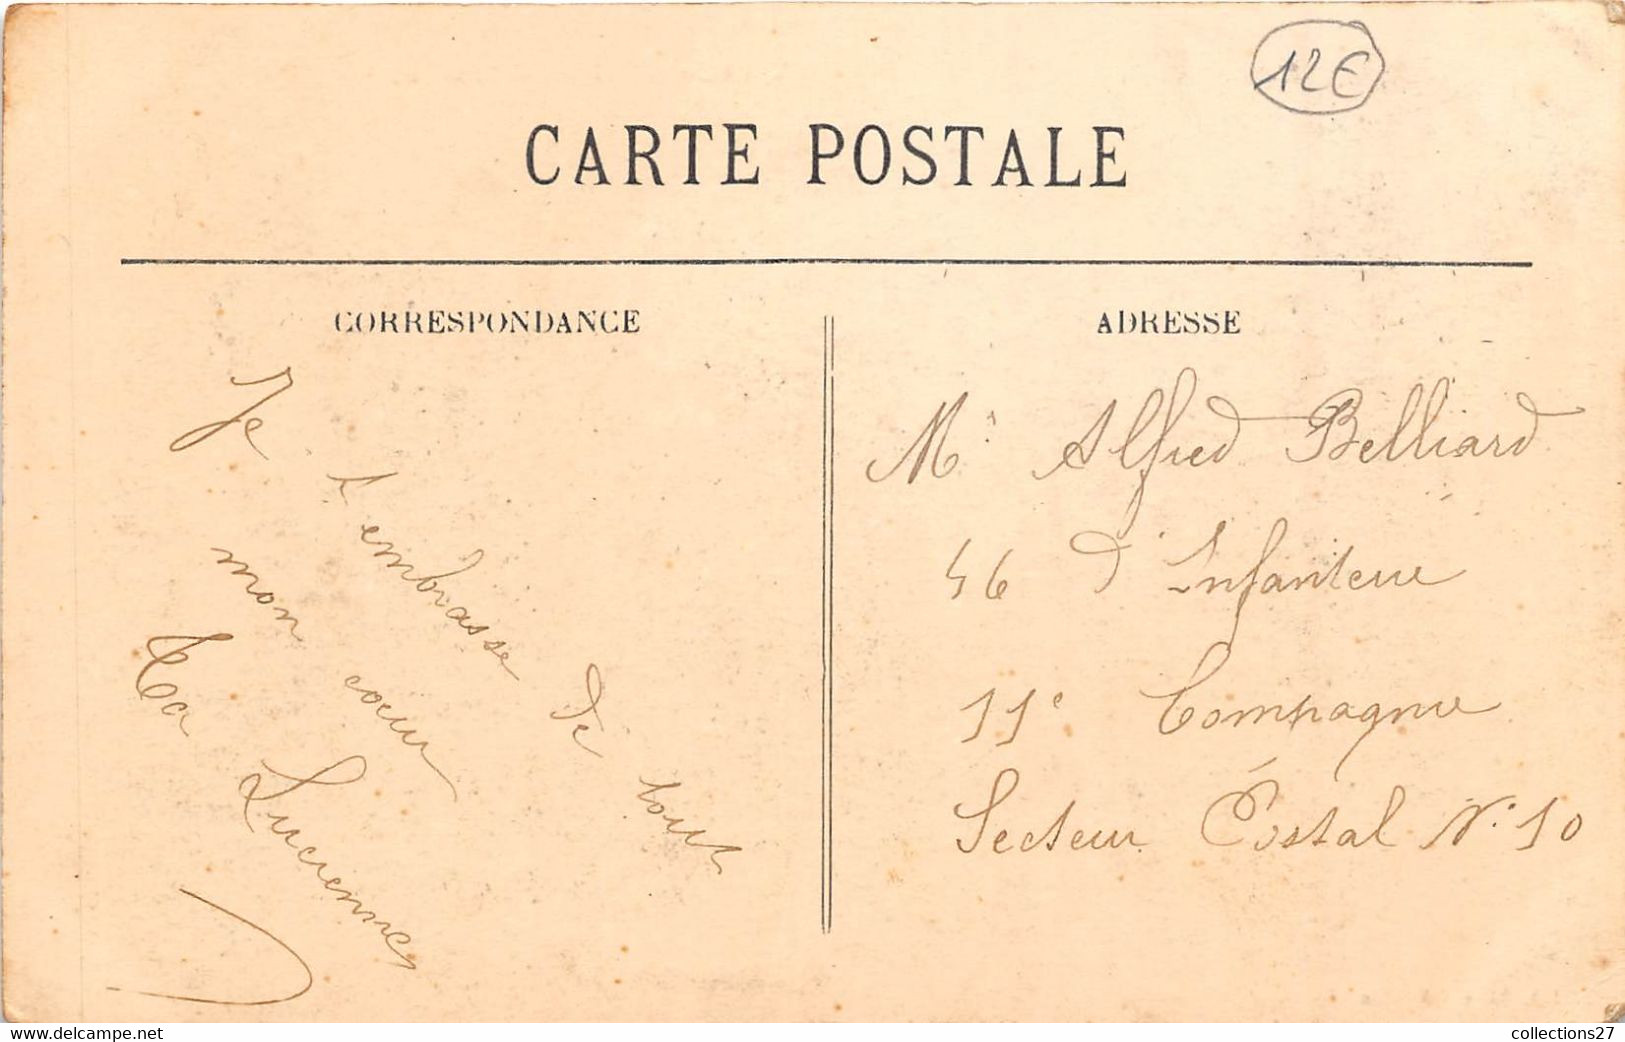 12€
CARTE POSTALE
CORRESPONDANCE
Je t'embrasse de tout
mon coeur
Ta Lucienne
ADRESSE
Mr Alfred Belliard
46 d'Infanterie
11e Compagnie
Secteur Postal N° 10
delcampe.net
collections27